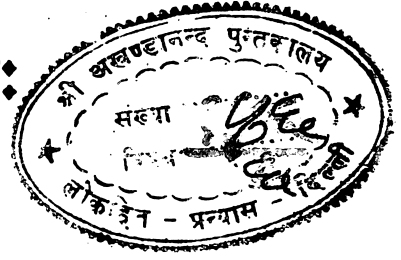 श्री अखण्डानन्द पुस्तकालय
संख्या
लोक हित - प्रन्यास - दिल्ली